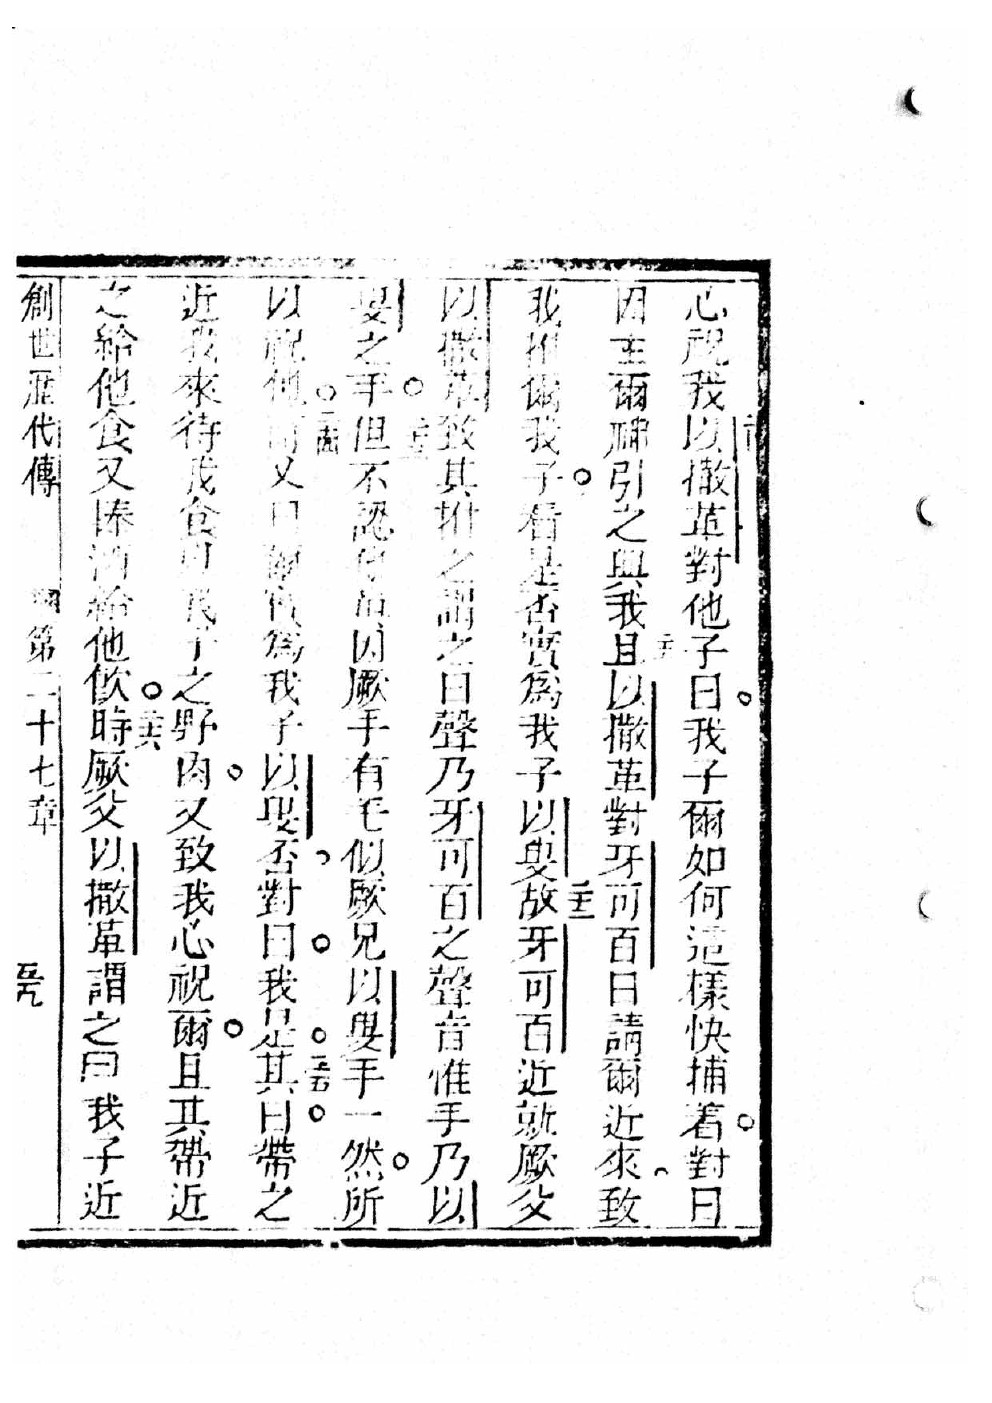 心祝我以撒革對他子曰我子爾如何這樣快捕着對曰
因主爾神引之與我且以撒革對牙可百曰請爾近來致
我拊爾我子看是否實爲我子以叟故牙可百近就厥父
以撒革致其拊之謂之曰聲乃牙可百之聲音惟手乃以
叟之手但不認他因厥手有毛似厥兄以叟手一然所
以祝他而又曰爾實爲我子以叟否對曰我是其曰帶之
近我來待我食由我子之野肉又致我心祝爾且其帶近
之給他食又捧酒給他飲時厥父以撒革謂之曰我子近
創世歷代傳 第二十七章 五九